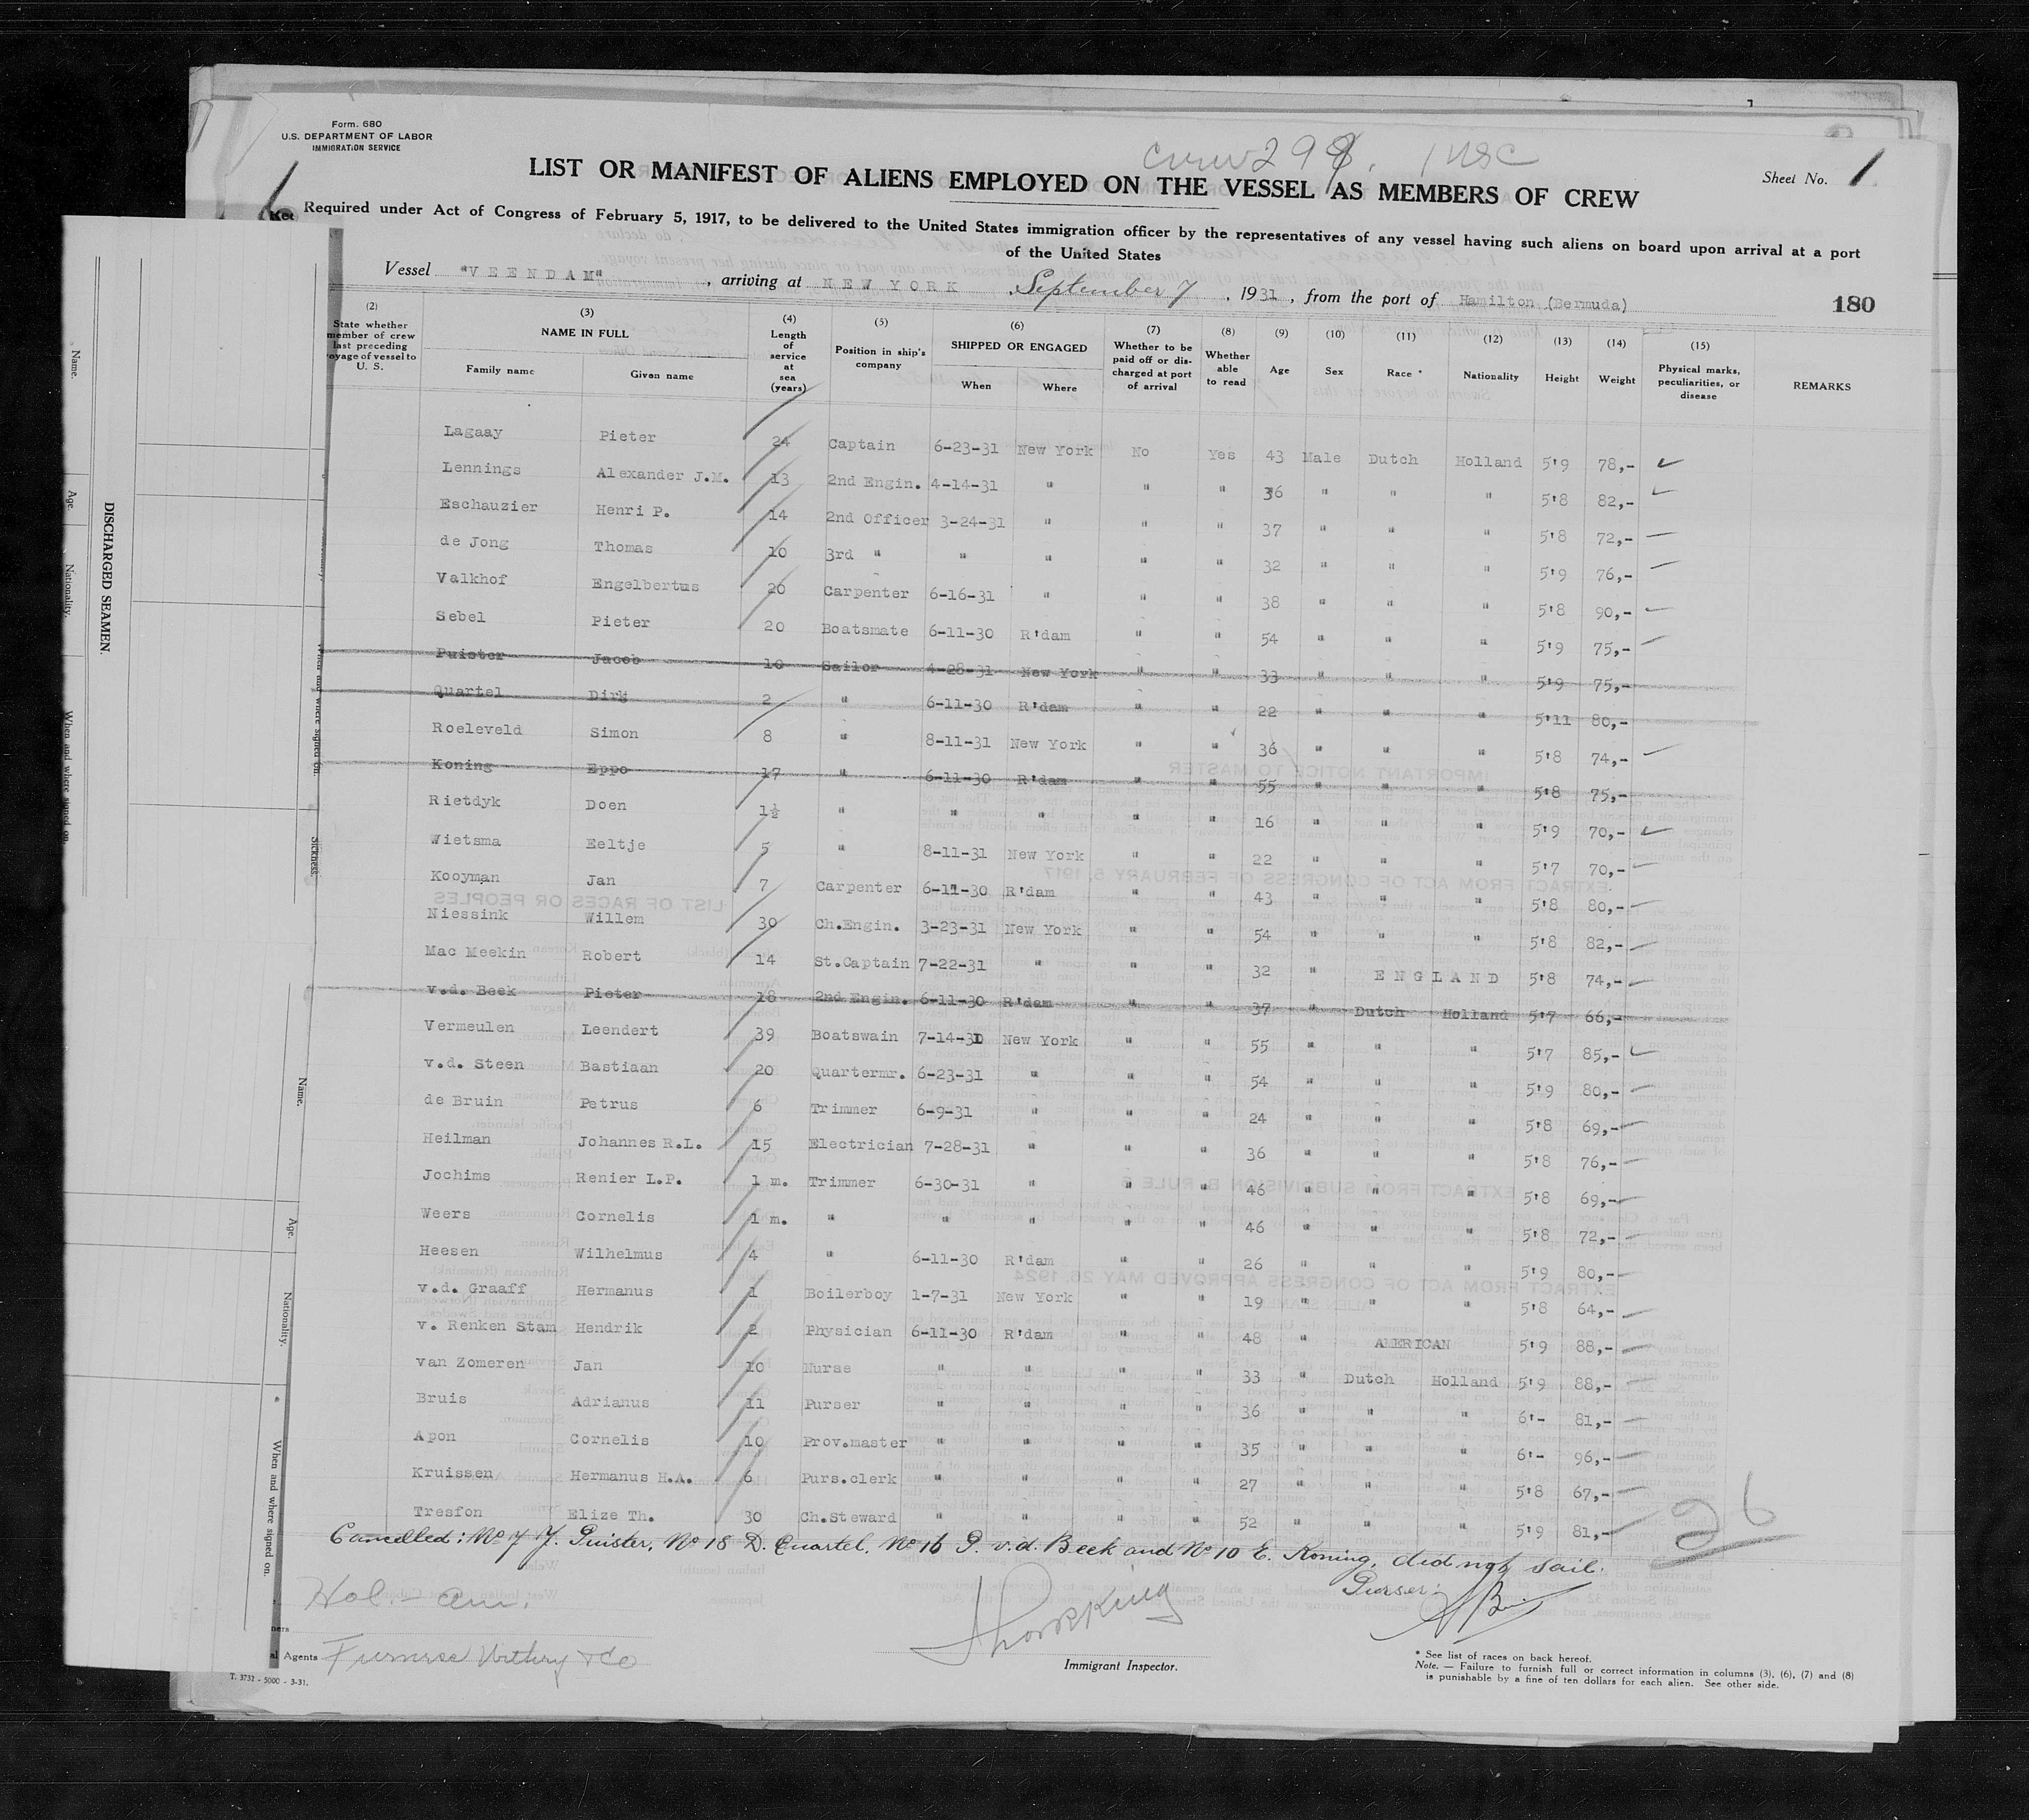 Form. 680
U.S. DEPARTMENT OF LABOR
IMMIGRATION SERVICE
Crew 298. 1 USC
LIST OR MANIFEST OF ALIENS EMPLOYED ON THE VESSEL AS MEMBERS OF CREW
Sheet No. 1
Required under Act of Congress of February 5, 1917, to be delivered to the United States immigration officer by the representatives of any vessel having such aliens on board upon arrival at a port
of the United States
Vessel "VEENDAM", arriving at NEW YORK September 7, 1931, from the port of Hamilton (Bermuda)
180
(2) (3) (4) (5) (6) (7) (8) (9) (10) (11) (12) (13) (14) (15)
State whether member of crew last preceding voyage of vessel to U. S. NAME IN FULL Length of service at sea (years) Position in ship's company SHIPPED OR ENGAGED Whether to be paid off or discharged at port of arrival Whether able to read Age Sex Race * Nationality Height Weight Physical marks, peculiarities, or disease REMARKS
Family name Given name When Where
Lagaay Pieter 24 Captain 6-23-31 New York No Yes 43 Male Dutch Holland 5'9 78,-
Lennings Alexander J.M. 13 2nd Engin. 4-14-31 " " " 36 " " " 5'8 82,-
Eschauzier Henri P. 14 2nd Officer 3-24-31 " " " 37 " " " 5'8 72,-
de Jong Thomas 10 3rd " " " " " 32 " " " 5'9 76,-
Valkhof Engelbertus 20 Carpenter 6-16-31 " " " 38 " " " 5'8 90,-
Sebel Pieter 20 Boatsmate 6-11-30 R'dam " " 54 " " " 5'9 75,-
Puister Jacob 10 Sailor 4-28-31 New York " " 33 " " " 5'9 75,-
Quartel Dirk 2 " 6-11-30 R'dam " " 22 " " " 5'11 80,-
Roeleveld Simon 8 " 8-11-31 New York " " 36 " " " 5'8 74,-
Koning Eppo 17 " 6-11-30 R'dam " " 55 " " " 5'8 75,-
Rietdyk Doen 1½ " " " " " 16 " " " 5'9 70,-
Wietsma Eeltje 5 " 8-11-31 New York " " 22 " " " 5'7 70,-
Kooyman Jan 7 Carpenter 6-11-30 R'dam " " 43 " " " 5'8 80,-
Niessink Willem 30 Ch.Engin. 3-23-31 New York " " 54 " " " 5'8 82,-
Mac Meekin Robert 14 St.Captain 7-22-31 " " " 32 " ENGLAND 5'8 74,-
v.d. Beek Pieter 18 2nd Engin. 6-11-30 R'dam " " 37 " Dutch Holland 5'7 66,-
Vermeulen Leendert 39 Boatswain 7-14-31 New York " " 55 " " " 5'7 85,-
v.d. Steen Bastiaan 20 Quartermr. 6-23-31 " " " 54 " " " 5'9 80,-
de Bruin Petrus 6 Trimmer 6-9-31 " " " 24 " " " 5'8 69,-
Heilman Johannes R.L. 15 Electrician 7-28-31 " " " 36 " " " 5'8 76,-
Jochims Renier L.P. 1 m. Trimmer 6-30-31 " " " 46 " " " 5'8 69,-
Weers Cornelis 1 m. " " " " " 46 " " " 5'8 72,-
Heesen Wilhelmus 4 " 6-11-30 R'dam " " 26 " " " 5'9 80,-
v.d. Graaff Hermanus 1 Boilerboy 1-7-31 New York " " 19 " " " 5'8 64,-
v. Renken Stam Hendrik 2 Physician 6-11-30 R'dam " " 48 " AMERICAN 5'9 88,-
van Zomeren Jan 10 Nurse " " " " 33 " Dutch Holland 5'9 88,-
Bruis Adrianus 11 Purser " " " " 36 " " " 6'- 81,-
Apon Cornelis 10 Prov.master " " " " 35 " " " 6'- 96,-
Kruissen Hermanus H.A. 6 Purs.clerk " " " " 27 " " " 5'8 67,-
Tresfon Elize Th. 30 Ch.Steward " " " " 52 " " " 5'9 81,-
26
Cancelled: No 7 J. Puister, No 18 D. Quartel, No 16 P. v.d. Beek and No 10 E. Koning, did not sail.
Purser:
Hol. - Am.
Agents Furness Withy & Co
Immigrant Inspector.
* See list of races on back hereof.
Note. — Failure to furnish full or correct information in columns (3), (6), (7) and (8)
is punishable by a fine of ten dollars for each alien. See other side.
T. 3731 - 5000 - 3-31.
DISCHARGED SEAMEN.
Name.
Age.
Nationality.
When and where signed on.
When and where signed on.
Sickness.
Name.
Age.
Nationality.
When and where signed on.